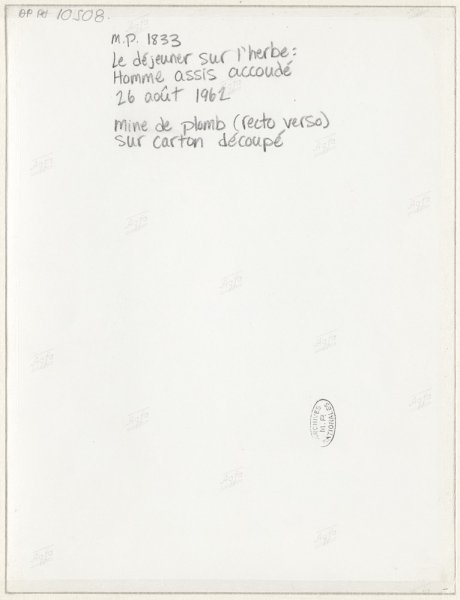 AP PH 10508.
M.P. 1833
Le déjeuner sur l'herbe:
Homme assis accoudé
26 août 1962
mine de plomb (recto verso)
sur carton découpé
ARCHIVES
M.P.
NATIONALES